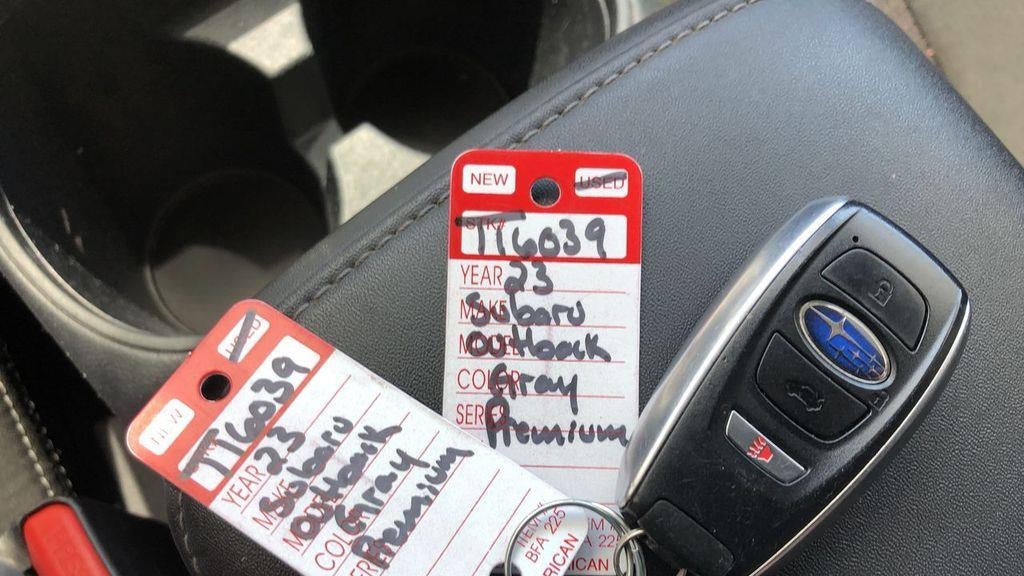 NEW USED
STK#
TT6039
YEAR 23
MAKE Subaru
MODEL Outback
COLOR Gray
SERIES Premium
NEW USED
TT6039
YEAR 23
MAKE Subaru
MODEL Outback
COLOR Gray
SERIES Premium
BFA 225
RICAN
A 22
ICAN